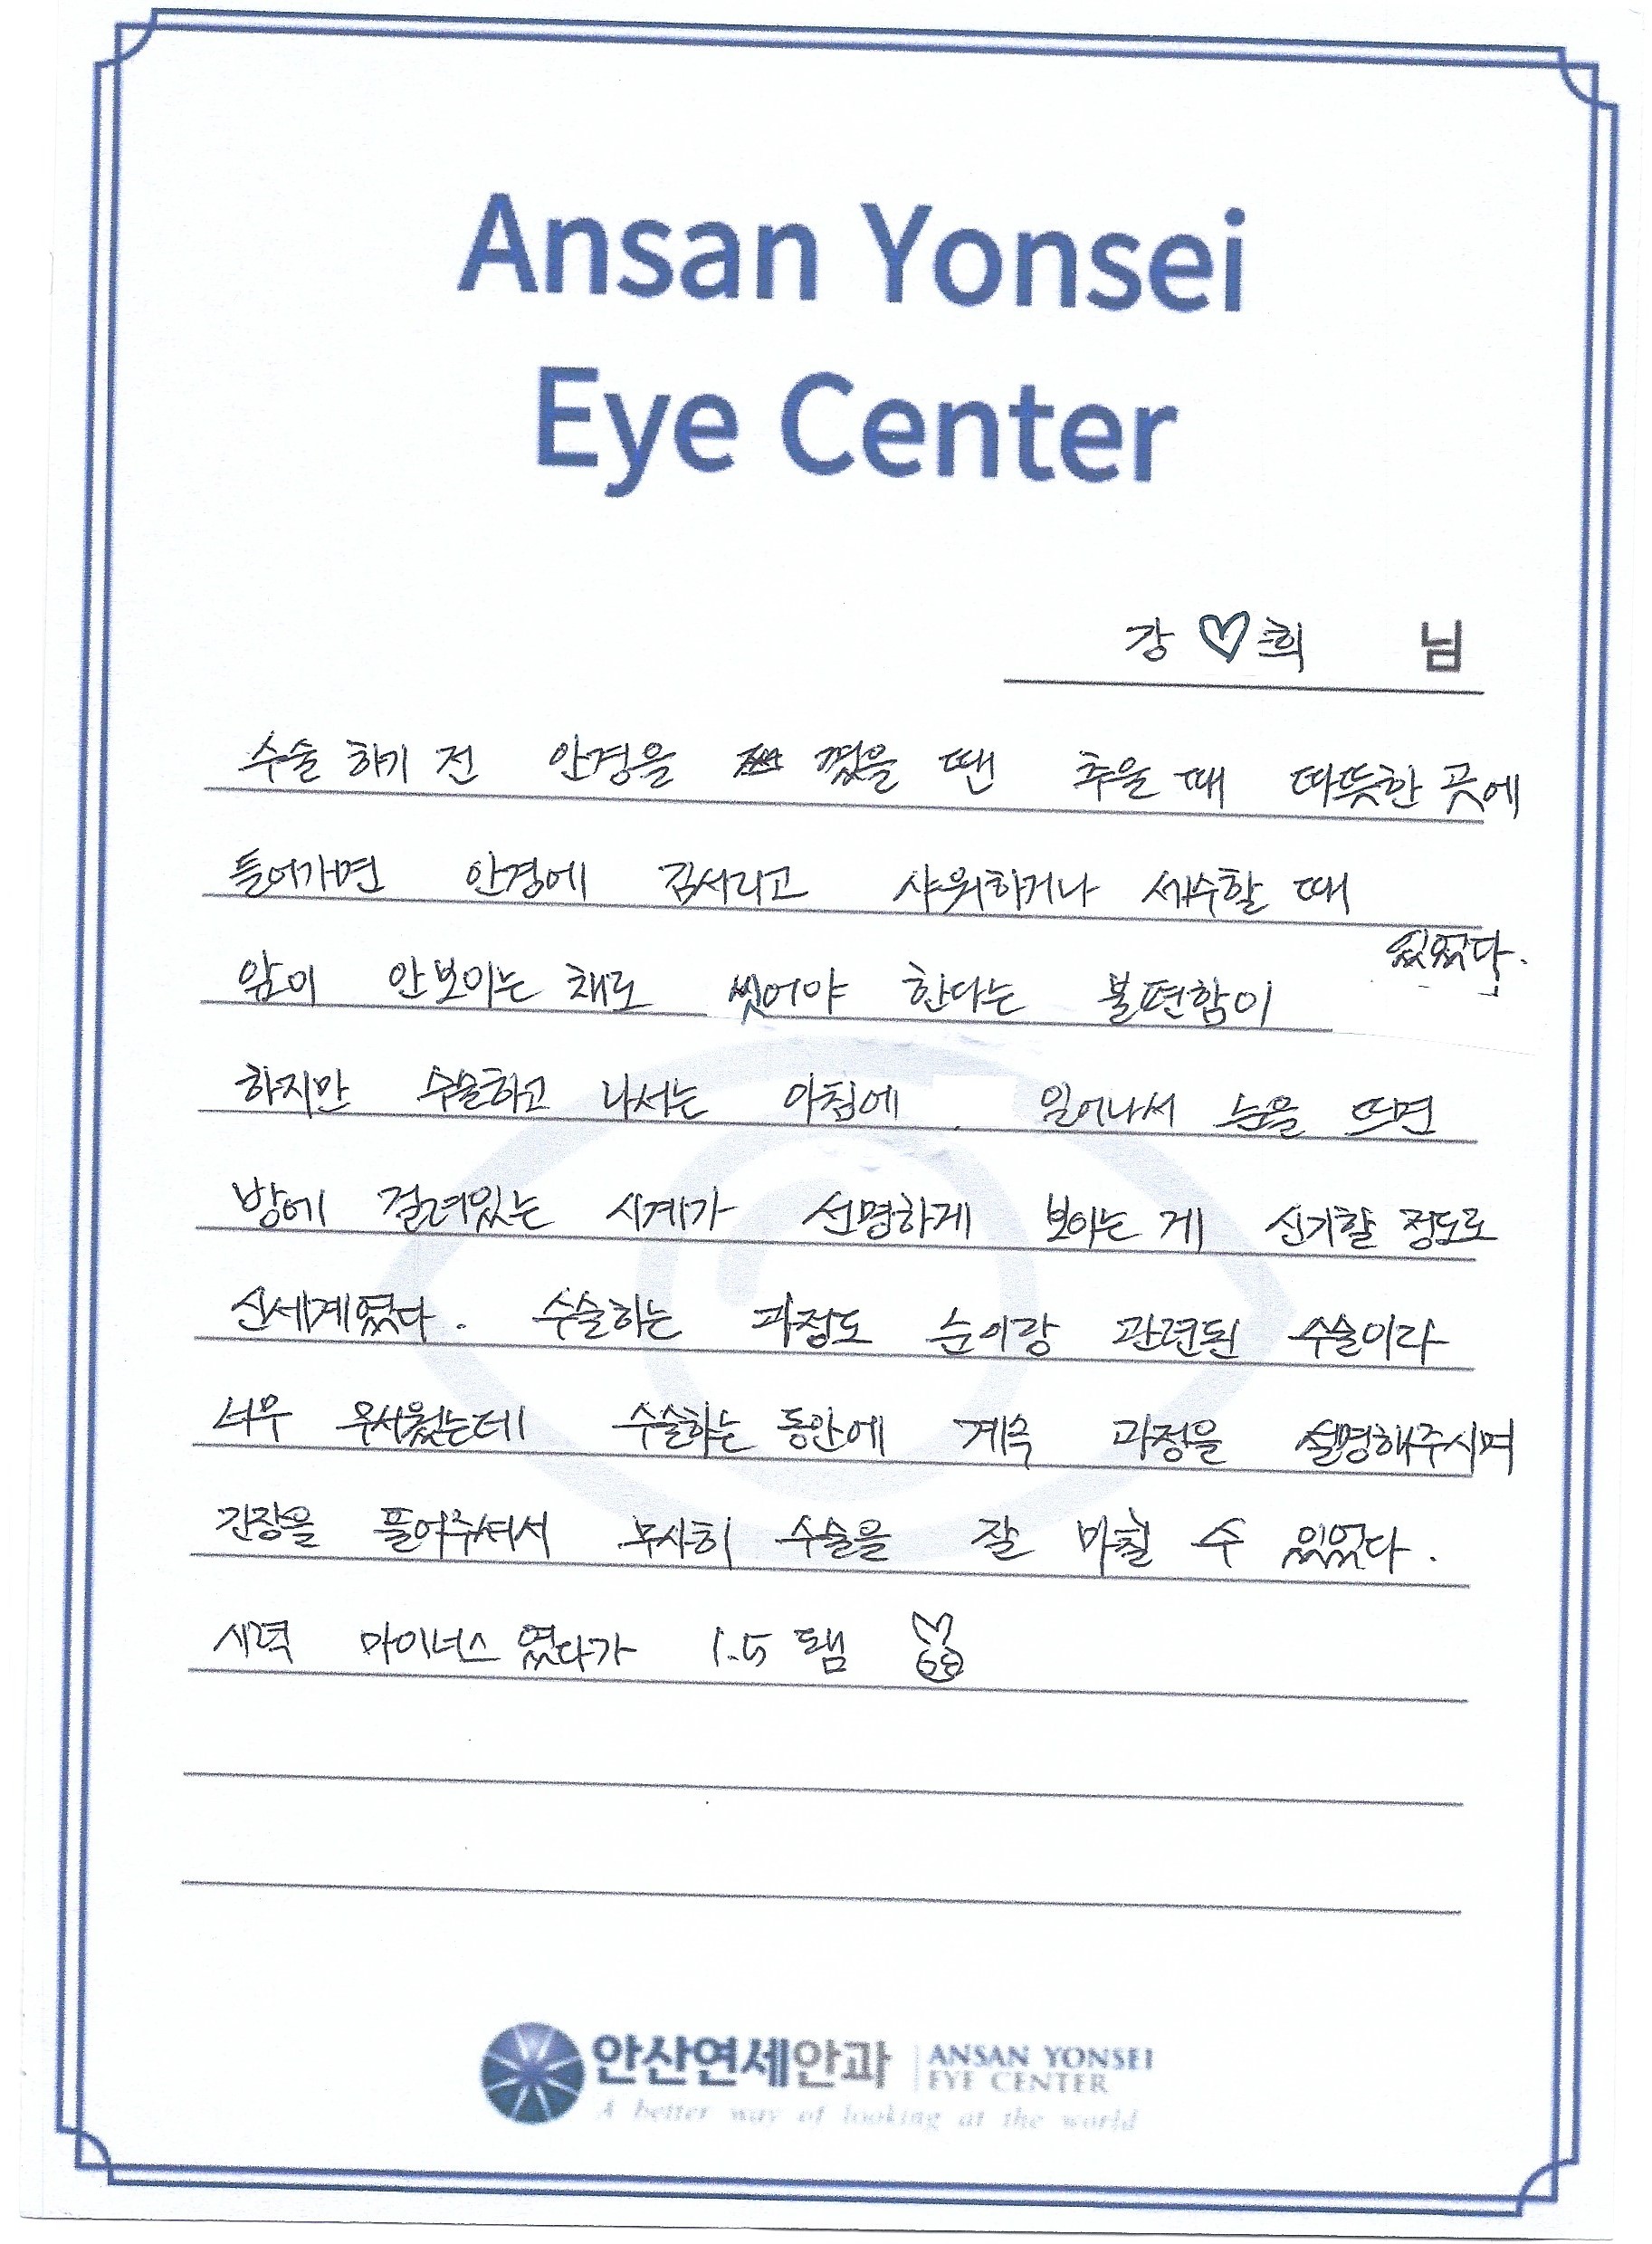 Ansan Yonsei
Eye Center
강 ♡ 희 님
수술 하기 전 안경을 꼈을 땐 추울 때 따뜻한 곳에
들어가면 안경에 김서리고 샤워하거나 세수할 때
앞이 안보이는 채로 씻어야 한다는 불편함이 있었다.
하지만 수술하고 나서는 아침에 일어나서 눈을 뜨면
방에 걸려있는 시계가 선명하게 보이는 게 신기할 정도로
신세계였다. 수술하는 과정도 눈이랑 관련된 수술이라
너무 무서웠는데 수술하는 동안에 계속 과정을 설명해주시며
긴장을 풀어주셔서 무사히 수술을 잘 마칠 수 있었다.
시력 마이너스 였다가 1.5 됌
안산연세안과 ANSAN YONSEI
EYE CENTER
A better way of looking at the world